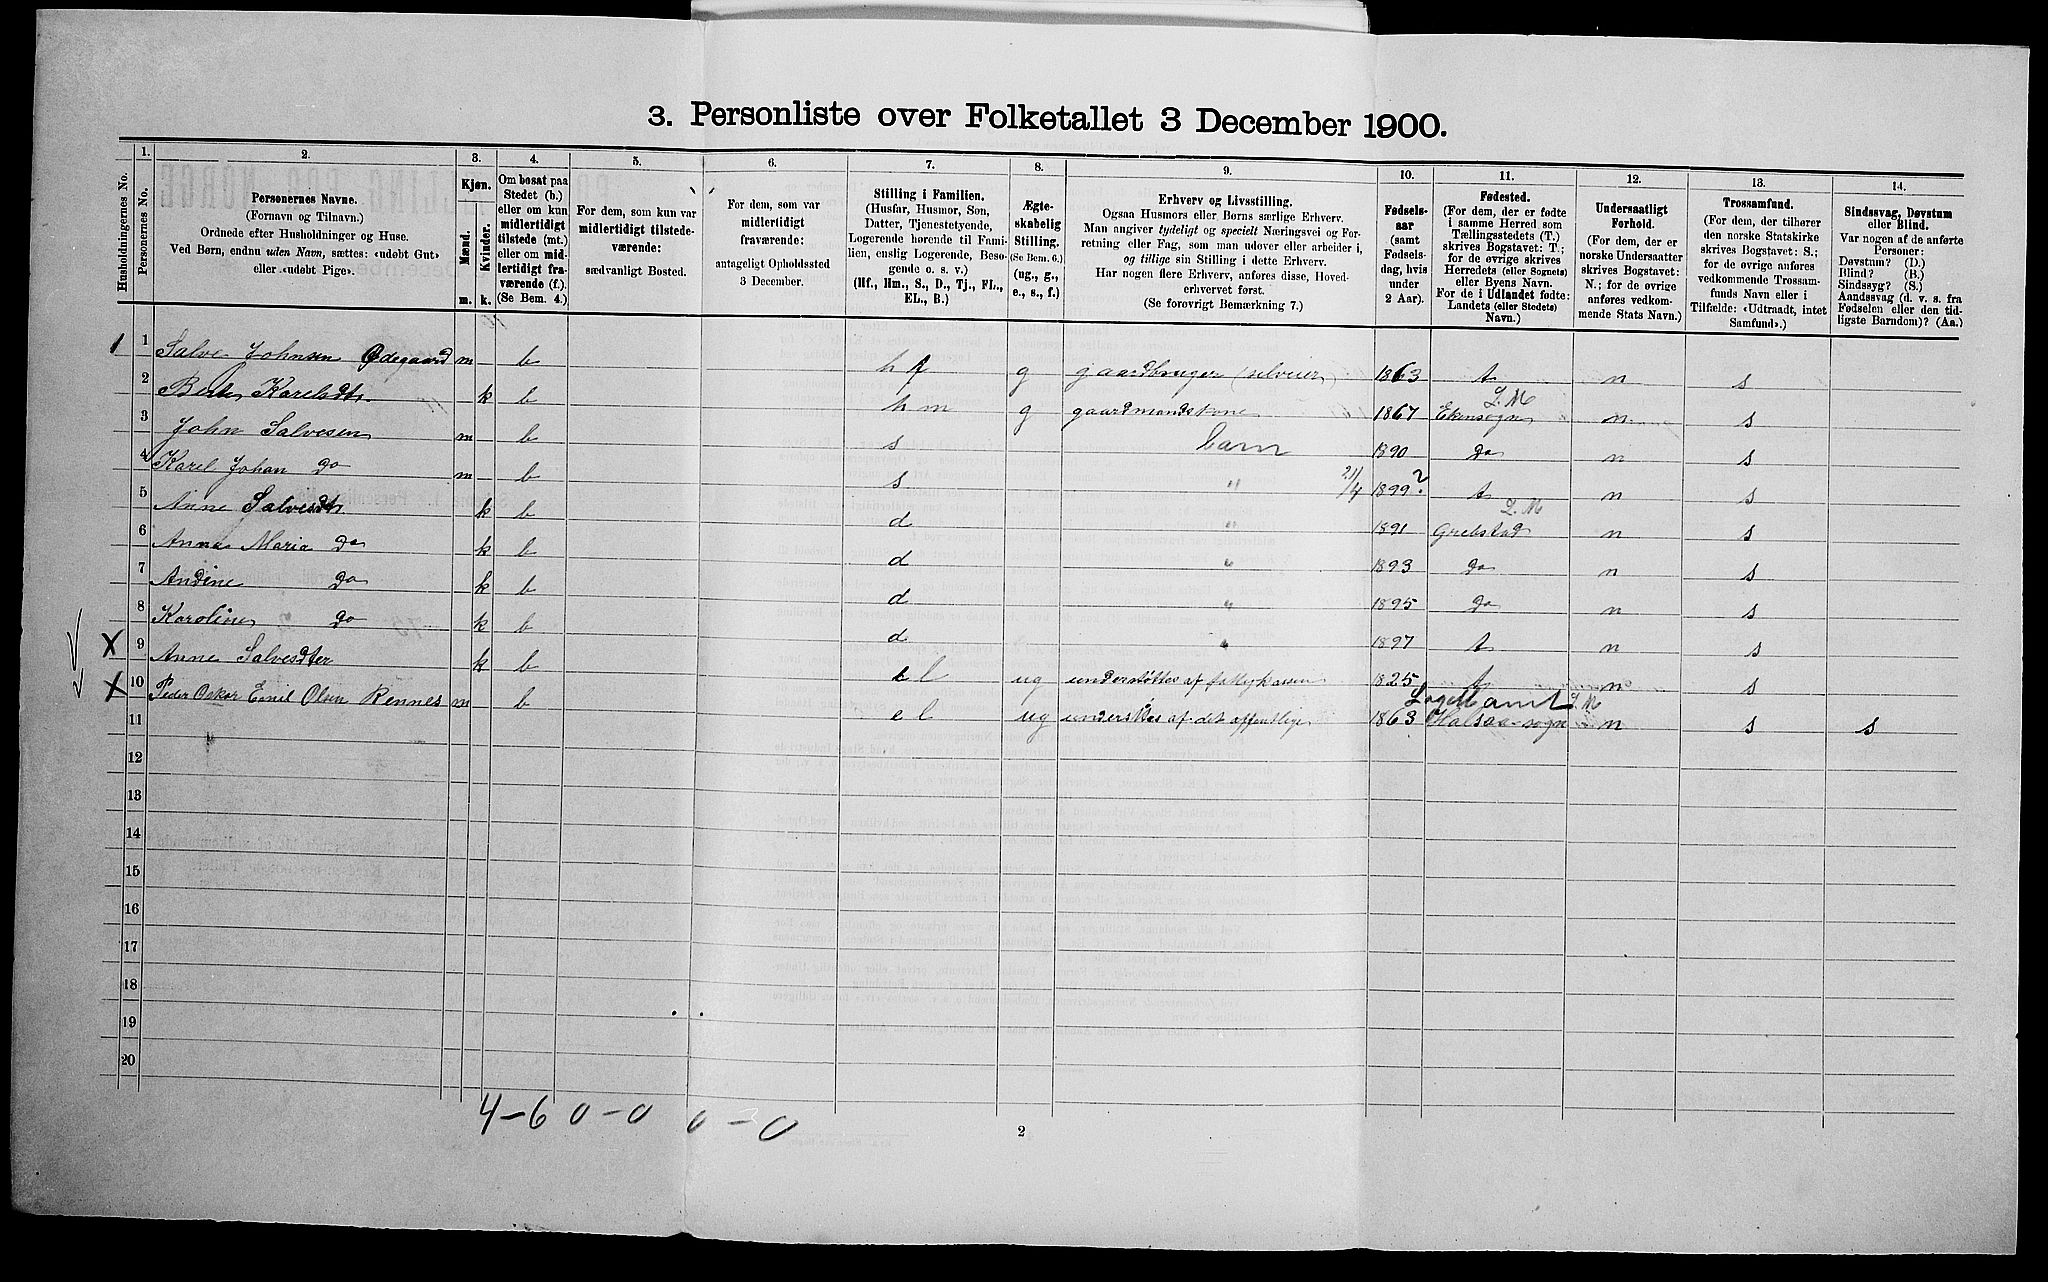 3. Personliste over Folketallet 3 December 1900.
Husholdningernes No.
1. Personernes No.
2. Personernes Navne.
(Fornavn og Tilnavn.)
Ordnede efter Husholdninger og Huse.
Ved Børn, endnu uden Navn, sættes: «udøbt Gut»
eller «udøbt Pige».
3. Kjøn.
Mænd. Kvinder.
m. k.
4. Om bosat paa
Stedet (b.)
eller om kun
midlertidigt
tilstede (mt.)
eller om mid-
lertidigt fra-
værende (f.).
(Se Bem. 4.)
5. For dem, som kun var
midlertidigt tilstede-
værende:
sædvanligt Bosted.
6. For dem, som var
midlertidigt
fraværende:
antageligt Opholdssted
3 December.
7. Stilling i Familien.
(Husfar, Husmor, Søn,
Datter, Tjenestetyende,
Logerende hørende til Fami-
lien, enslig Logerende, Besø-
gende o. s. v.)
(Hf., Hm., S., D., Tj., FL.,
EL., B.)
8. Ægte-
skabelig
Stilling.
(Se Bem. 6.)
(ug., g.,
e., s., f.)
9. Erhverv og Livsstilling.
Ogsaa Husmors eller Børns særlige Erhverv.
Man angiver tydeligt og specielt Næringsvei og For-
retning eller Fag, som man udøver eller arbeider i,
og tillige sin Stilling i dette Erhverv.
Har nogen flere Erhverv, anføres disse, Hoved-
erhvervet først.
(Se forøvrigt Bemærkning 7.)
10. Fødsels-
aar
(samt
Fødsels-
dag, hvis
under
2 Aar).
11. Fødested.
(For dem, der er fødte
i samme Herred som
Tællingsstedets (T.)
skrives Bogstavet: T.;
for de øvrige skrives
Herredets (eller Sognets)
eller Byens Navn.
For de i Udlandet fødte:
Landets (eller Stedets)
Navn.)
12. Undersaatligt
Forhold.
(For dem, der er
norske Undersaatter
skrives Bogstavet:
N.; for de øvrige
anføres vedkom-
mende Stats Navn.)
13. Trossamfund.
(For dem, der tilhører
den norske Statskirke
skrives Bogstavet: S.;
for de øvrige anføres
vedkommende Trossam-
funds Navn eller i
Tilfælde: «Udtraadt, intet
Samfund».)
14. Sindssvag, Døvstum
eller Blind.
Var nogen af de anførte
Personer:
Døvstum? (D.)
Blind? (B.)
Sindssyg? (S.)
Aandssvag (d. v. s. fra
Fødselen eller den tid-
ligste Barndom)? (Aa.)
1 1 Salve Johnsen Ødegaard m b hf g gaardbruger (selveier) 1863 t n s
2 Karelsdtr k b hm g gaardmandskone 1867 Ekensogn L. M n s
3 John Salvesen m b s barn 1890 Do n s
4 Karel Johan Do m b s " 21/4 1899? t n s
5 Anne Salvesdtr k b d " 1891 Grebstad L. M n s
6 Anne Maria Do k b d " 1893 Do n s
7 Andine Do k b d " 1895 Do n s
8 Karoline Do k b d " 1897 t n s
X 9 Anne Salvesdter k b el ug understøttes af fattigkassen 1825 t n s
X 10 Peder Oskar Emil Olsen Rennes m b el ug af det offentlige 1863 Halsaa-sogn L. M n s s
11
12
13
14
15
16
17
18
19
20
4-6 0-0 0-0
2